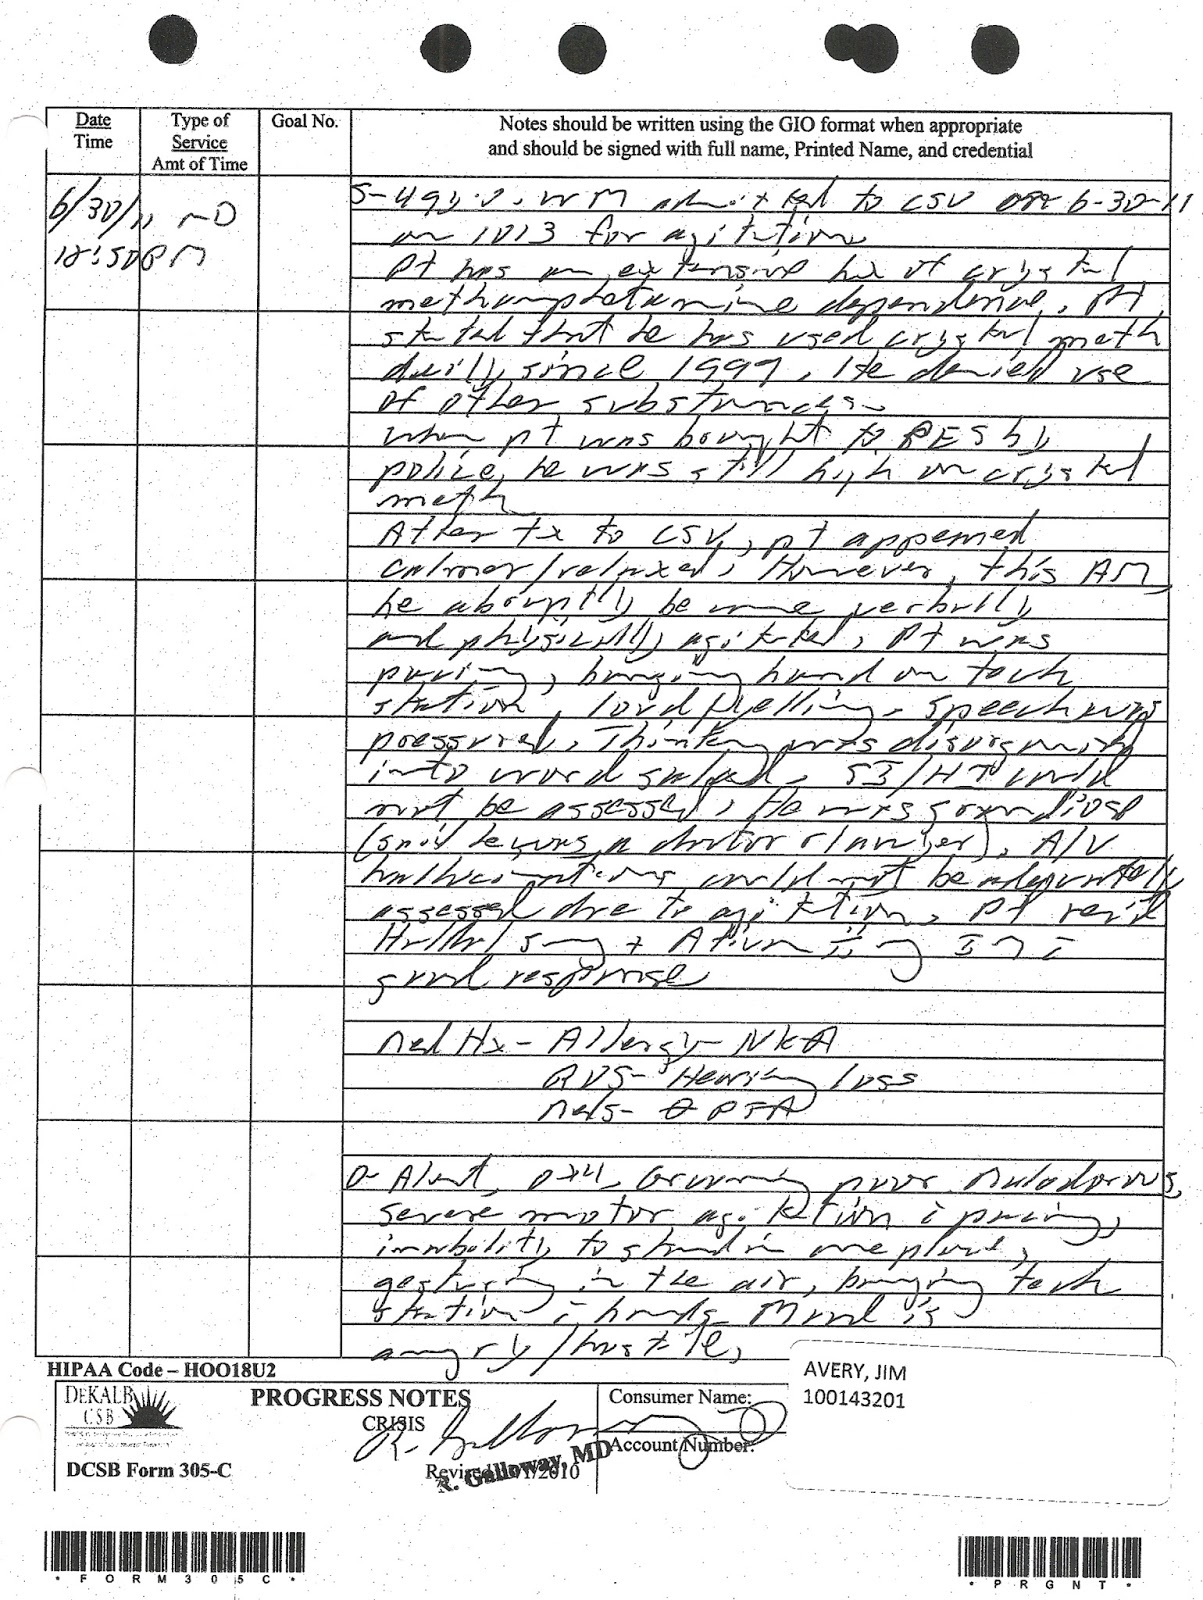 Date
Time
Type of
Service
Amt of Time
Goal No.
Notes should be written using the GIO format when appropriate
and should be signed with full name, Printed Name, and credential
6/30/11 MD
12:50PM
S- 49 y.o. WM admitted to CSU on 6-30-11
on 1013 for agitation
Pt has an extensive hx of crystal
methamphetamine dependence. Pt
stated that he has used crystal meth
daily since 1999. He denied use
of other substances.
When pt was bought to PES by
police, he was still high on crystal
meth
After tx to CSU, pt appeared
calmer/relaxed. However, this AM,
he abruptly became verbally
and physically agitated. Pt was
pacing, banging hand on tech
station, loud yelling. Speech was
pressured. Thinking was disorganized
into word salad. SI/HI could
not be assessed. He was grandiose
(said he was a doctor & lawyer). A/V
hallucinations could not be adequately
assessed due to agitation. Pt rec'd
Haldol 5mg + Ativan ii mg IM c̄
good response
Med Hx- Allergy- NKA
ROS- Hearing loss
Meds- Ø PTA
O- Alert, OX4, Grooming poor. Malodorous,
severe motor agitation c̄ pacing,
inability to stand in one place,
gesturing in the air, banging tech
station c̄ hands. Mood is
angry/hostile,
HIPAA Code – HOO18U2
DEKALB
CSB
DCSB Form 305-C
PROGRESS NOTES
CRISIS
R. Galloway
Revised 1/1/2010
R. Galloway, MD
Consumer Name:
Account Number:
AVERY, JIM
100143201
* F O R M 3 0 5 C *
* P R G N T *